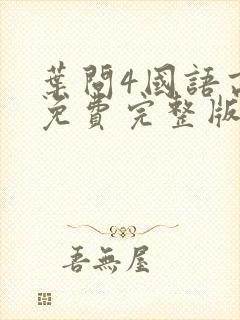 葉問4國語
免費完整版
吾無屋